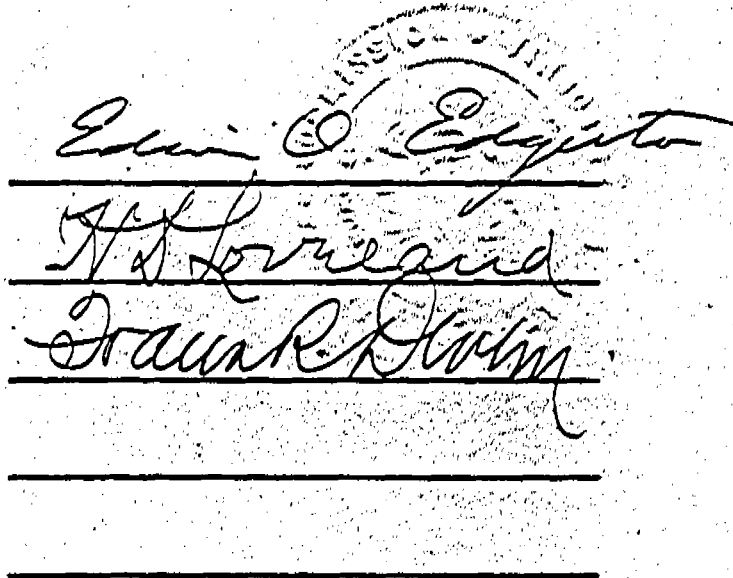 Edwin O Edgerton
H D Loveland
Frank R. Devlin